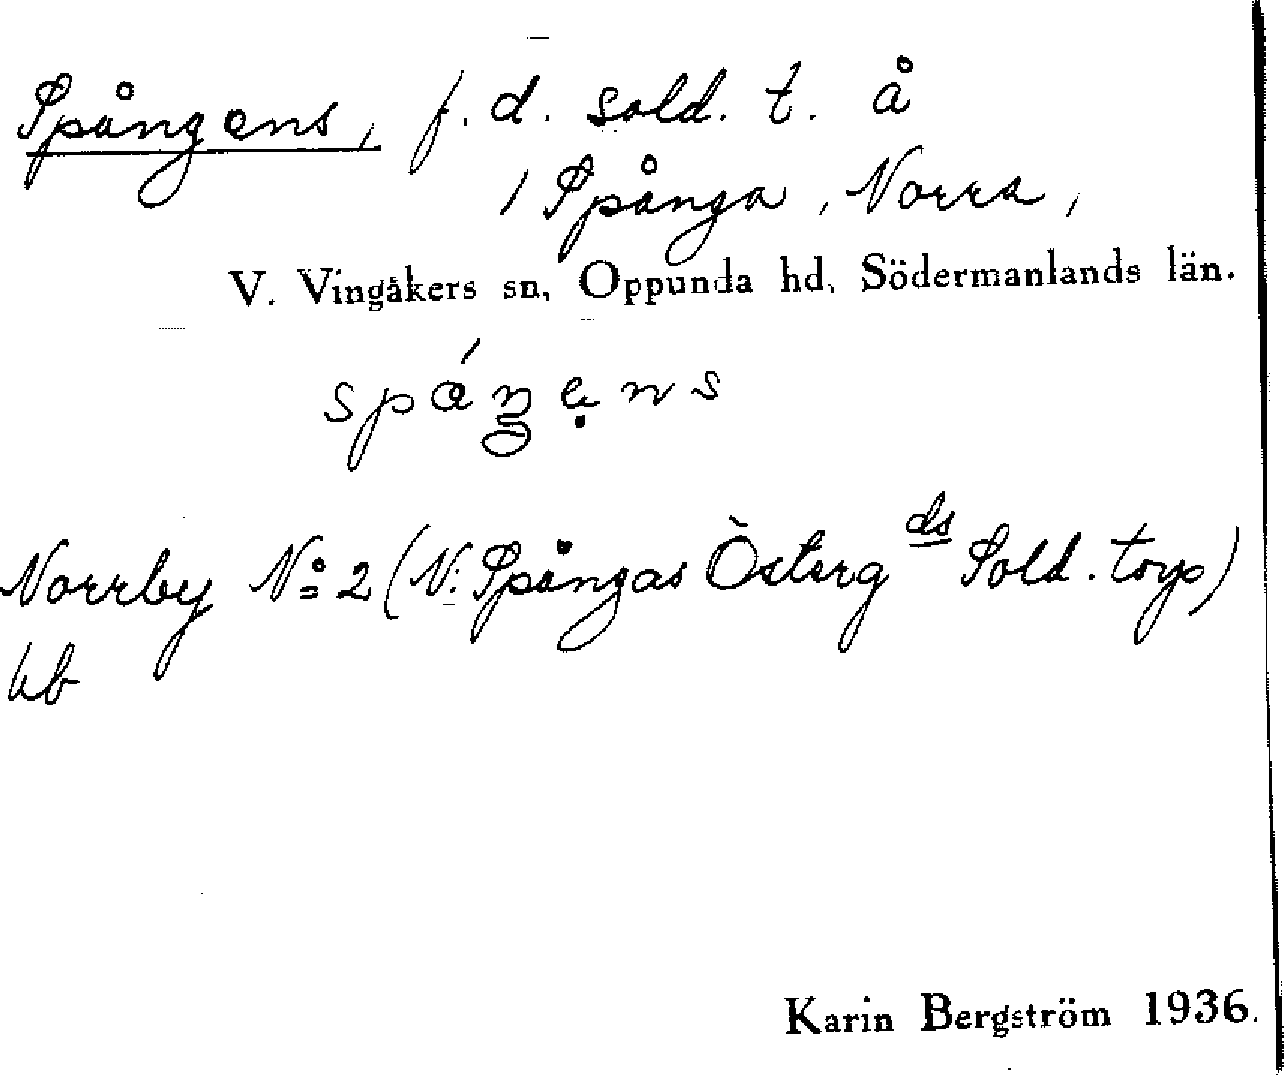 Spångens, f. d. sold. t. å
/ Spånga, Norra,
V. Vingåkers sn, Oppunda hd, Södermanlands län.
Norrby No 2 (N: Spångas Österg ds Sold. torp)
hb
Karin Bergström 1936.